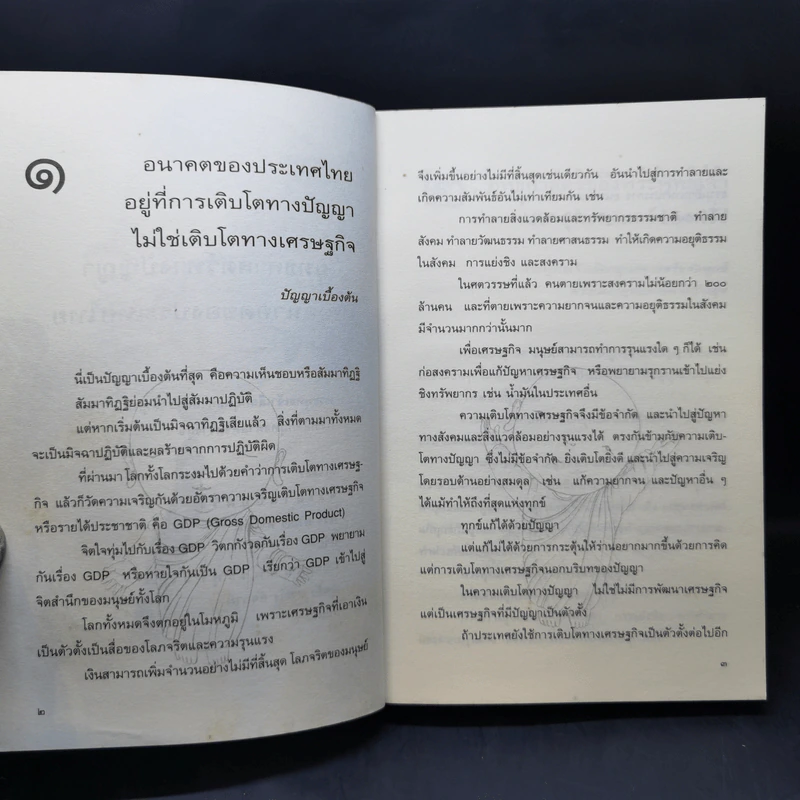 ๑
อนาคตของประเทศไทย
อยู่ที่การเติบโตทางปัญญา
ไม่ใช่เติบโตทางเศรษฐกิจ
ปัญญาเบื้องต้น
นี่เป็นปัญญาเบื้องต้นที่สุด คือความเห็นชอบหรือสัมมาทิฏฐิ
สัมมาทิฏฐิย่อมนำไปสู่สัมมาปฏิบัติ
แต่หากเริ่มต้นเป็นมิจฉาทิฏฐิเสียแล้ว สิ่งที่ตามมาทั้งหมด
จะเป็นมิจฉาปฏิบัติและผลร้ายจากการปฏิบัติผิด
ที่ผ่านมา โลกทั้งโลกระงมไปด้วยคำว่าการเติบโตทางเศรษฐ-
กิจ แล้วก็วัดความเจริญกันด้วยอัตราความเจริญเติบโตทางเศรษฐกิจ
หรือรายได้ประชาชาติ คือ GDP (Gross Domestic Product)
จิตใจทุ่มไปกับเรื่อง GDP วิตกกังวลกับเรื่อง GDP พยายาม
กันเรื่อง GDP หรือหายใจกันเป็น GDP เรียกว่า GDP เข้าไปสู่
จิตสำนึกของมนุษย์ทั้งโลก
โลกทั้งหมดจึงตกอยู่ในโมหภูมิ เพราะเศรษฐกิจที่เอาเงิน
เป็นตัวตั้งเป็นสื่อของโลภจริตและความรุนแรง
เงินสามารถเพิ่มจำนวนอย่างไม่มีที่สิ้นสุด โลภจริตของมนุษย์
๒
จึงเพิ่มขึ้นอย่างไม่มีที่สิ้นสุดเช่นเดียวกัน อันนำไปสู่การทำลายและ
เกิดความสัมพันธ์อันไม่เท่าเทียมกัน เช่น
การทำลายสิ่งแวดล้อมและทรัพยากรธรรมชาติ ทำลาย
สังคม ทำลายวัฒนธรรม ทำลายศาสนธรรม ทำให้เกิดความอยุติธรรม
ในสังคม การแย่งชิง และสงคราม
ในศตวรรษที่แล้ว คนตายเพราะสงครามไม่น้อยกว่า ๒๐๐
ล้านคน และที่ตายเพราะความยากจนและความอยุติธรรมในสังคม
มีจำนวนมากกว่านั้นมาก
เพื่อเศรษฐกิจ มนุษย์สามารถทำการรุนแรงใด ๆ ก็ได้ เช่น
ก่อสงครามเพื่อแก้ปัญหาเศรษฐกิจ หรือพยายามรุกรานเข้าไปแย่ง
ชิงทรัพยากร เช่น น้ำมันในประเทศอื่น
ความเติบโตทางเศรษฐกิจจึงมีข้อจำกัด และนำไปสู่ปัญหา
ทางสังคมและสิ่งแวดล้อมอย่างรุนแรงได้ ตรงกันข้ามกับความเติบ-
โตทางปัญญา ซึ่งไม่มีข้อจำกัด ยิ่งเติบโตยิ่งดี และนำไปสู่ความเจริญ
โดยรอบด้านอย่างสมดุล เช่น แก้ความยากจน และปัญหาอื่น ๆ
ได้แม้ทำถึงที่สุดแห่งทุกข์
ทุกข์แก้ได้ด้วยปัญญา
แต่แก้ไม่ได้ด้วยการกระตุ้นให้ร่านอยากมากขึ้นด้วยการคิด
แต่การเศรษฐกิจนอกบริบทของปัญญา
ในความเติบโตทางปัญญา ไม่ใช่ไม่มีการพัฒนาเศรษฐกิจ
แต่เป็นเศรษฐกิจที่มีปัญญาเป็นตัวตั้ง
ถ้าประเทศยังใช้การเติบโตทางเศรษฐกิจเป็นตัวตั้งต่อไปอีก
๓